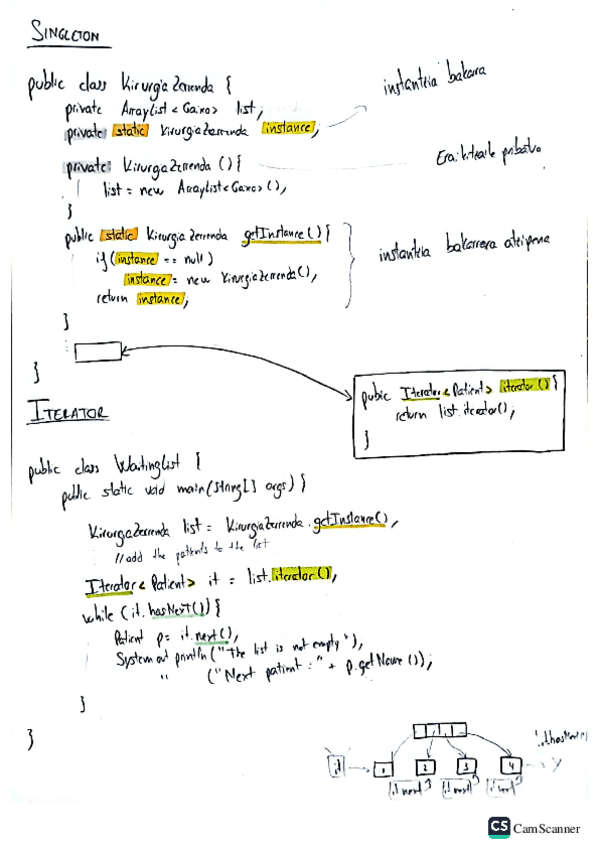 SINGLETON
public class KirurgiaZerrenda {
private ArrayList<Gaixo> list;
private static KirurgiaZerrenda instance;
instantzia bakarra
private KirurgiaZerrenda () {
Eraikitzaile pribatua
list = new ArrayList<Gaixo>();
}
public static KirurgiaZerrenda getInstance() {
if (instance == null)
instance = new KirurgiaZerrenda();
return instance;
instantzia bakarrera atzipena
}
}
public Iterator<Patient> iterator() {
return list.iterator();
}
ITERATOR
public class WaitingList {
public static void main(String[] args) {
KirurgiaZerrenda list = KirurgiaZerrenda.getInstance();
//add the patients to the list
Iterator<Patient> it = list.iterator();
while (it.hasNext()) {
Patient p = it.next();
System.out.println("The list is not empty");
" ("Next patient: " + p.getName());
}
}
it 1 2 3 4
it.next it.next it.next
CS CamScanner